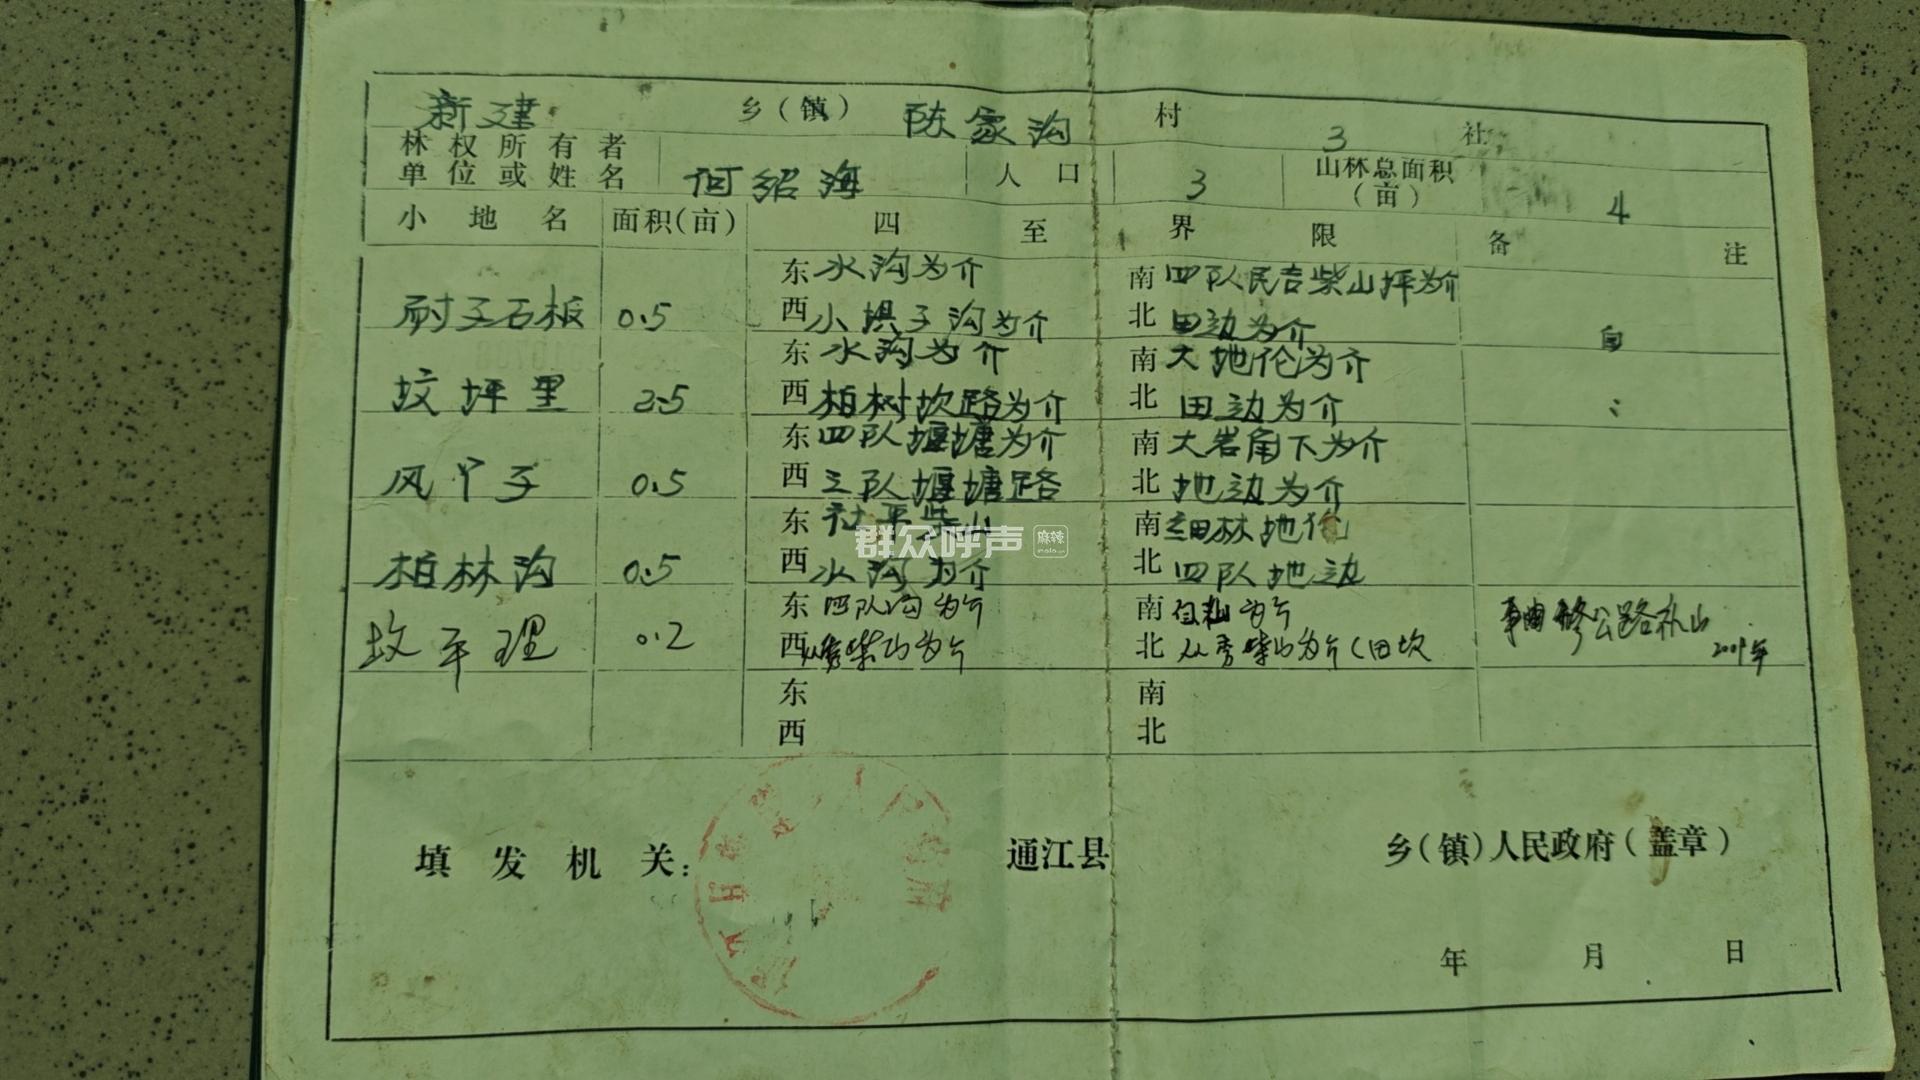 新建 乡(镇) 陈家沟 村 3 社
林权所有者单位或姓名 何绍海 人口 3 山林总面积(亩) 4
小地名 面积(亩) 四至界限 备注
耐子石板 0.5 东 水沟为介 南 四队民吉柴山坪为介
西 小拱子沟为介 北 田边为介 自
坟坪里 2.5 东 水沟为介 南 大地伦为介
西 柏树坎路为介 北 田边为介
风甲子 0.5 东 四队堰塘为介 南 大岩角下为介
西 三队堰塘路 北 地边为介
柏林沟 0.5 东 柴山 南 林地伦
西 水沟为介 北 四队地边
坟平理 0.2 东 四队沟为介 南 为介
西 柴山为介 北 从秀柴山为介(田坎 修公路 山
年
东 南
西 北
填发机关: 通江县 乡(镇)人民政府(盖章)
年 月 日
群众呼声 麻辣